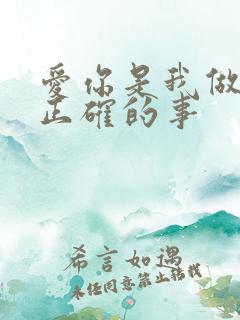 爱你是我做
正确的事
希言如遇
未经同意禁止转载